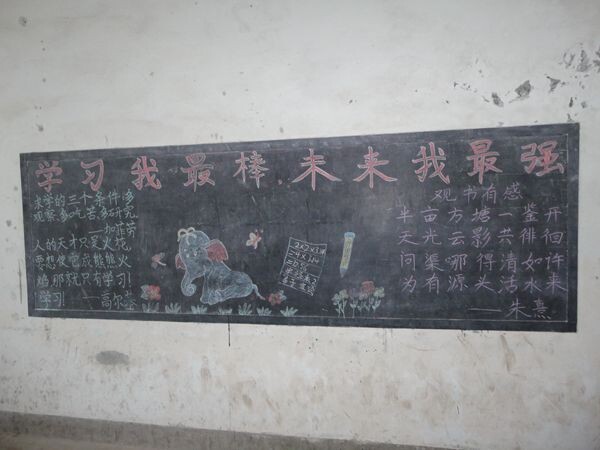 学习我最棒未来我最强
求学的三个条件多
观察、多吃苦、多研究
——加菲劳
人的天才只是火花,
要想使它成熊熊火
焰那就只有学习!
学习! ——高尔基
观书有感
半亩方塘一鉴开
天光云影共徘徊
问渠哪得清如许
为有源头活水来
——朱熹